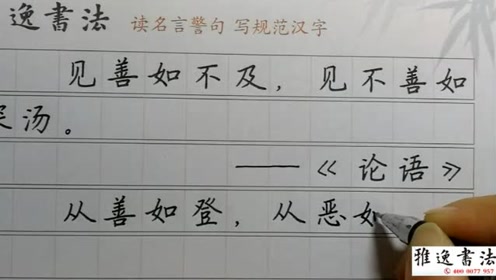 逸書法 读名言警句 写规范汉字
见善如不及，见不善如
汤。
——《论语》
从善如登，从恶如
雅逸書法
400 0077 957